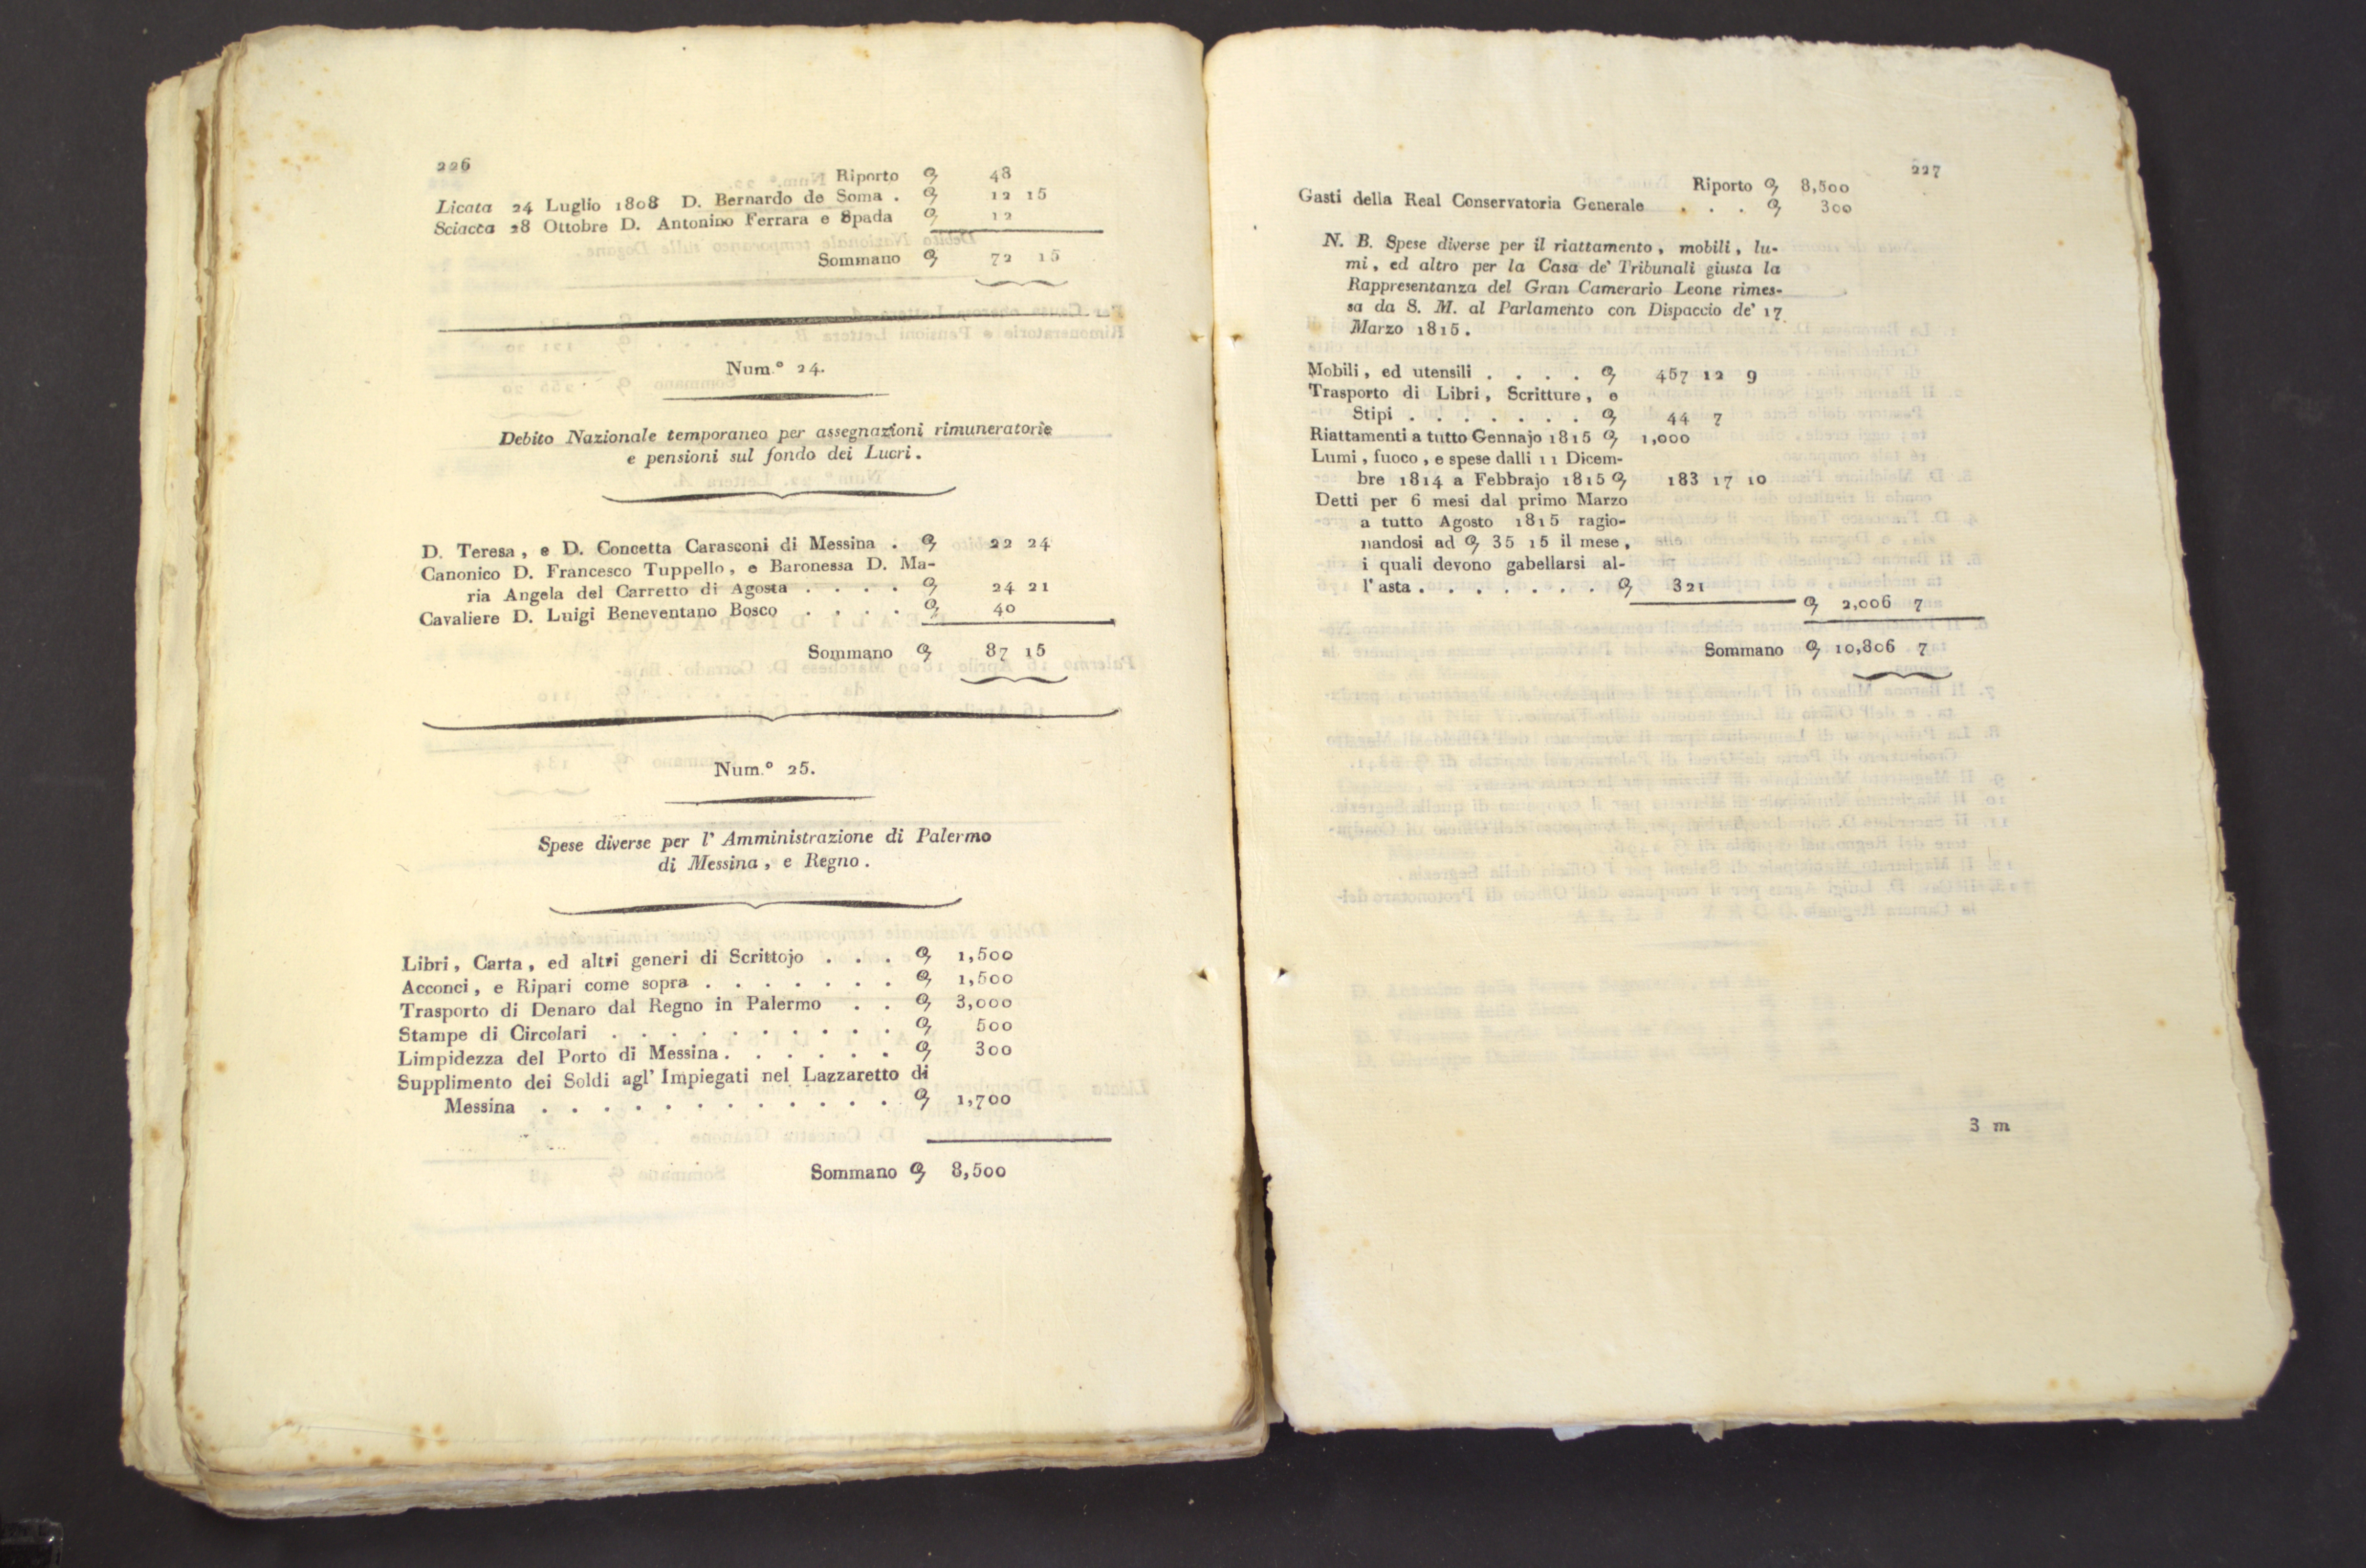 226
Riporto ꝯ 48
Licata 24 Luglio 1808 D. Bernardo de Soma . ꝯ 12 15
Sciacca 28 Ottobre D. Antonino Ferrara e Spada ꝯ 12
Sommano ꝯ 72 15
Num.° 24.
Debito Nazionale temporaneo per assegnazioni rimuneratorie
e pensioni sul fondo dei Lucri.
D. Teresa, e D. Concetta Carasconi di Messina . ꝯ 22 24
Canonico D. Francesco Tuppello, e Baronessa D. Ma-
ria Angela del Carretto di Agosta . . . . ꝯ 24 21
Cavaliere D. Luigi Beneventano Bosco . . . . ꝯ 40
Sommano ꝯ 87 15
Num.° 25.
Spese diverse per l' Amministrazione di Palermo
di Messina, e Regno.
Libri, Carta, ed altri generi di Scrittojo . . . ꝯ 1,500
Acconci, e Ripari come sopra . . . . . . . ꝯ 1,500
Trasporto di Denaro dal Regno in Palermo . . ꝯ 3,000
Stampe di Circolari . . . . . . . . . . ꝯ 500
Limpidezza del Porto di Messina . . . . . . ꝯ 300
Supplimento dei Soldi agl' Impiegati nel Lazzaretto di
Messina . . . . . . . . . . . . ꝯ 1,700
Sommano ꝯ 8,500
227
Riporto ꝯ 8,500
Gasti della Real Conservatoria Generale . . . ꝯ 300
N. B. Spese diverse per il riattamento, mobili, lu-
mi, ed altro per la Casa de' Tribunali giusta la
Rappresentanza del Gran Camerario Leone rimes-
sa da S. M. al Parlamento con Dispaccio de' 17
Marzo 1815.
Mobili, ed utensili . . . . ꝯ 457 12 9
Trasporto di Libri, Scritture, e
Stipi . . . . . . . ꝯ 44 7
Riattamenti a tutto Gennajo 1815 ꝯ 1,000
Lumi, fuoco, e spese dalli 11 Dicem-
bre 1814 a Febbrajo 1815 ꝯ 183 17 10
Detti per 6 mesi dal primo Marzo
a tutto Agosto 1815 ragio-
nandosi ad ꝯ 35 15 il mese,
i quali devono gabellarsi al-
l' asta . . . . . . . ꝯ 321
ꝯ 2,006 7
Sommano ꝯ 10,806 7
3 m